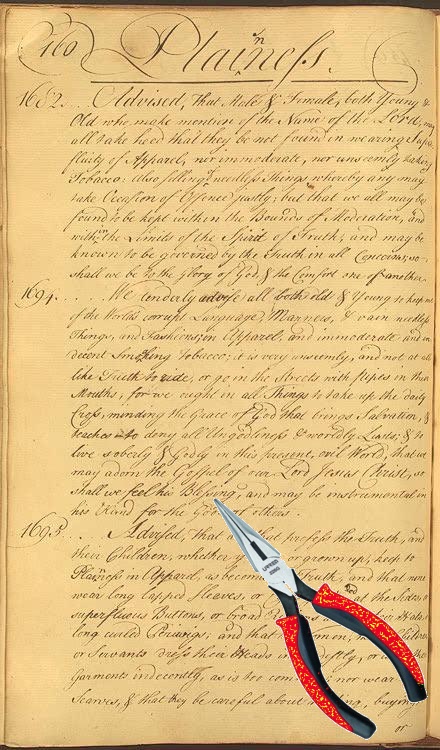 160 Plainness.
1682... Advised, That Male & Female, both Young &
Old who make mention of the Name of the Lord, may
all take heed that they be not found in wearing Supe
fluity of Apparel, nor immoderate, nor unseemly taking
Tobacco: Also selling needless Things whereby any may
take Occasion of Offence justly; but that we all may be
found to be kept within the Bounds of Moderation, and
within the Limits of the Spirit of Truth; and may be
known to be governed by the Truth in all Concerns, so
shall we be to the Glory of God, & the Comfort one of another.
1694..... We tenderly advise all both old & Young to keep
of the World's corrupt Language, Manners, & vain needless
Things, and Fashions, in Apparel, and immoderate and in
decent Smoking Tobacco; it is very unseemly, and not at all
like Truth to ride, or go in the Streets with pipes in their
Mouths; for we ought in all Things to take up the daily
Cross, minding the Grace of God that brings Salvation, &
teaches to deny all Ungodliness & worldly Lusts, & to
live soberly & Godly in this present, evil World, that we
may adorn the Gospel of our Lord Jesus Christ, so
shall we feel his Blessing, and may be instrumental in
his Hand for the Good of others.
1695... Advised, That profess the Truth, and
their Children, whether grown up, keep to
Plainess in Apparel, as becomes Truth, and that none
wear long lapped Sleeves, or at the Sides,
superfluous Buttons, or broad Hats,
long curled Periwigs, and that
or Servants dress their Heads
Garments indecently, as is too nor wear
Scarves, & that they be careful about buying,
or